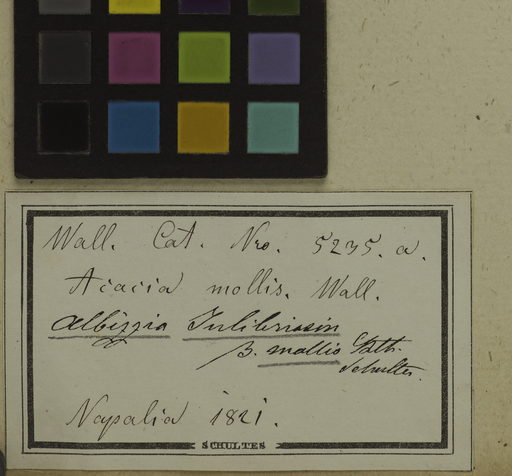 Wall. Cat. Nro. 5235. a.
Acacia mollis. Wall.
Albizzia Julibrissin
β. mollis Bth.
Schultes.
Napalia 1821.
SCHULTES